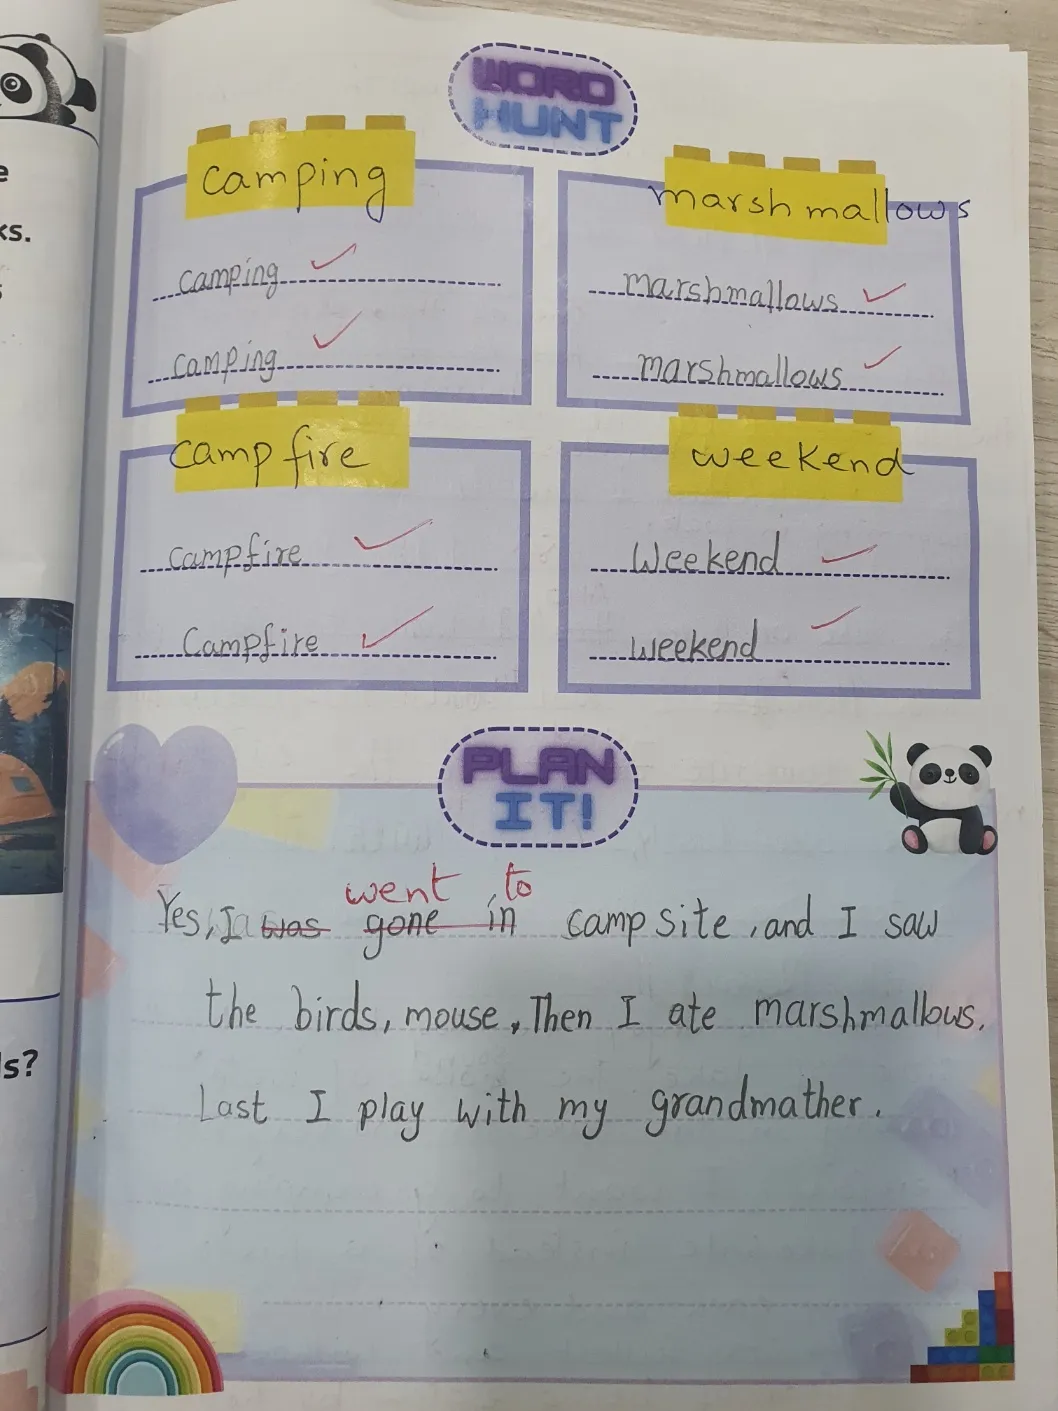 WORD
HUNT
camping
camping
camping
marshmallows
marshmallows
marshmallows
campfire
campfire
Campfire
weekend
Weekend
weekend
ks.
PLAN
IT!
went to
Yes, I was gone in camp site, and I saw
the birds, mouse, Then I ate marshmallows.
Last I play with my grandmather.
s?